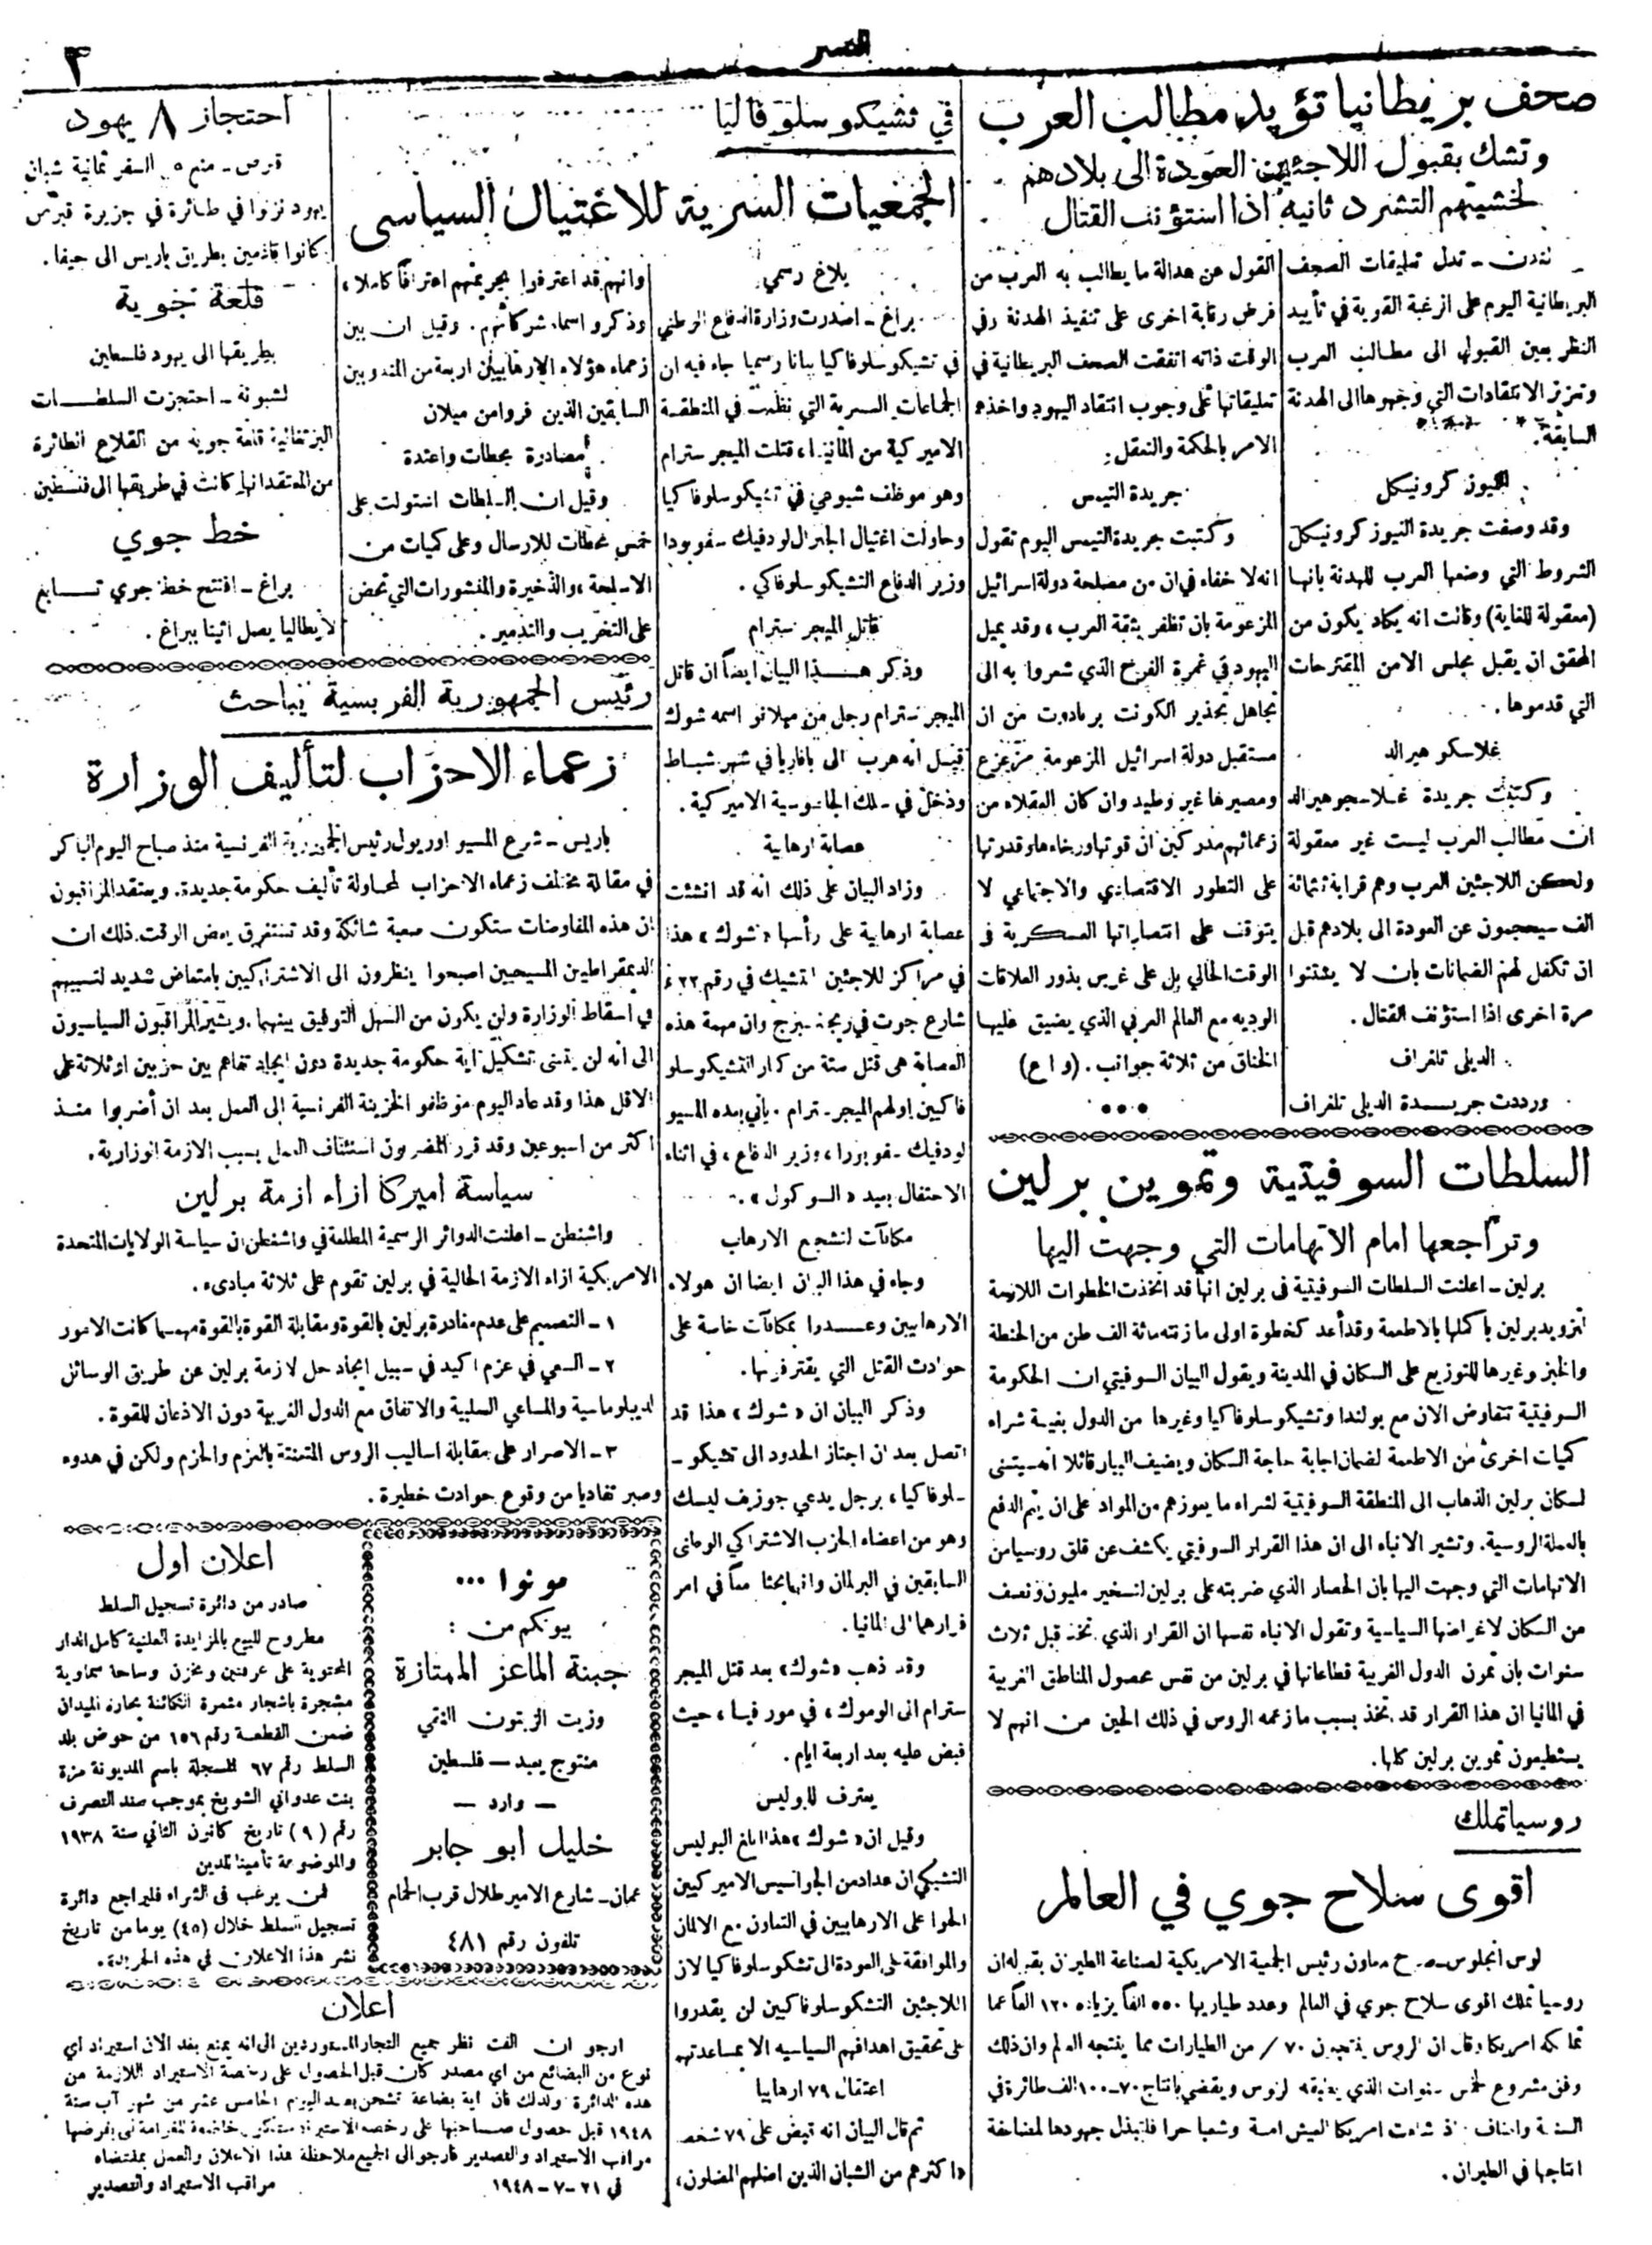 النسر
٣
صحف بريطانيا تؤيد مطالب العرب
وتشك بقبول اللاجئين العودة الى بلادهم
لخشيتهم التشرد ثانية اذا استؤنف القتال
لندن – تدل تعليقات الصحف
البريطانية اليوم على الرغبة القوية في تأييد
النظر بعين القبول الى مطالب العرب
وتبرز الانتقادات التي وجهوها الى الهدنة
السابقة.
النيوز كرونيكل
وقد وصفت جريدة النيوز كرونيكل
الشروط التي وضعها العرب للهدنة بانها
(معقولة للغاية) وقالت انه يكاد يكون من
المحقق ان يقبل مجلس الامن المقترحات
التي قدموها.
غلاسكو هيرالد
وكتبت جريدة غلاسجو هيرالد
ان مطالب العرب ليست غير معقولة
ولكن اللاجئين العرب وهم قرابة ثلثمائة
الف سيحجمون عن العودة الى بلادهم قبل
ان تكفل لهم الضمانات بان لا يشتتوا
مرة اخرى اذا استؤنف القتال.
الديلي تلغراف
ورددت جريدة الديلي تلغراف
القول عن عدالة ما يطالب به العرب من
فرض رقابة اخرى على تنفيذ الهدنة وفي
الوقت ذاته اتفقت الصحف البريطانية في
تعليقاتها على وجوب انتقاد اليهود واخذهم
الامر بالحكمة والتعقل:
جريدة التيمس
وكتبت جريدة التيمس اليوم تقول
انه لا خفاء في ان من مصلحة دولة اسرائيل
المزعومة بان تظفر بثقة العرب، وقد يميل
اليهود في غمرة الفرح الذي شعروا به الى
تجاهل تحذير الكونت برنادوت من ان
مستقبل دولة اسرائيل المزعومة مزعزع
ومصيرها غير وطيد وان كان العقلاء من
زعمائهم مدركين ان قوتها ورخاءها وقدرتها
على التطور الاقتصادي والاجتماعي لا
يتوقف على انتصاراتها العسكرية في
الوقت الحالي بل على غرس بذور العلاقات
الوديه مع العالم العربي الذي يضيق عليها
الخناق من ثلاثة جوانب. (و ا ع)
السلطات السوفيتية وتموين برلين
وتراجعها امام الاتهامات التي وجهت اليها
برلين – اعلنت السلطات السوفيتية في برلين انها قد اتخذت الخطوات اللازمة
لتزويد برلين باكملها بالاطعمة وقد أعد كخطوة اولى ما زنته مائة الف طن من الحنطة
والخبز وغيرها للتوزيع على السكان في المدينة ويقول البيان السوفيتي ان الحكومة
السوفيتية تتفاوض الان مع بولندا وتشيكوسلوفاكيا وغيرها من الدول بغية شراء
كميات اخرى من الاطعمة لضمان اجابة حاجة السكان ويضيف البيان قائلا انه سيتسنى
لسكان برلين الذهاب الى المنطقة السوفيتية لشراء ما يعوزهم من المواد على ان يتم الدفع
بالعملة الروسية. وتشير الانباء الى ان هذا القرار السوفيتي يكشف عن قلق روسيا من
الاتهامات التي وجهت اليها بان الحصار الذي ضربته على برلين لتسخير مليون ونصف
من السكان لاغراضها السياسية وتقول الانباء نفسها ان القرار الذي تخذ قبل ثلاث
سنوات بان تمون الدول الغربية قطاعاتها في برلين من نفس محصول المناطق الغربية
في المانيا ان هذا القرار قد تخذ بسبب ما زعمه الروس في ذلك الحين من انهم لا
يستطيعون تموين برلين كلها.
روسيا تملك
اقوى سلاح جوي في العالم
لوس انجلوس – صرح رئيس الجمعية الامريكية لصناعة الطيران بقوله ان
روسيا تملك اقوى سلاح جوي في العالم وعدد طياريها ٥٥٠ الفاً بزيادة ١٢٠ الفاً عما
تملكه امريكا وقال ان الروس ينتجون ٧٠ / من الطيارات مما ينتجه العالم وان ذلك
وفق مشروع لخمس سنوات الذي الروس ويقضي بانتاج ٧٠–١٠٠ الف طائرة في
السنة واضاف شاءت امريكا العيش امة وشعبا حرا فلتبذل جهودها لمضاعفة
انتاجها في الطيران.
في تشيكوسلوفاكيا
الجمعيات السرية للاغتيال السياسي
بلاغ رسمي
براغ – اصدرت وزارة الدفاع الوطني
في تشيكوسلوفاكيا بيانا رسميا جاء فيه ان
الجماعات السرية التي نظمت في المنطقة
الاميركية من المانيا، قتلت الميجر سترام
وهو موظف شيوعي في تشيكوسلوفاكيا
وحاولت اغتيال الجنرال لودفيك سفوبودا
وزير الدفاع التشيكوسلوفاكي.
قاتل الميجر سترام
وذكر هذا البيان ايضاً ان قاتل
الميجر سترام رجل من ميلانو اسمه شوك
قيل انه هرب الى بافاريا في شهر شباط
ودخل في سلك الجاسوسية الاميركية.
عصابة ارهابية
وزاد البيان على ذلك انه قد انشئت
عصابة ارهابية على رأسها «شوك» هذا
في مراكز للاجئين التشيك في رقم
شارع جوت في وان مهمة هذه
العصابة هي قتل ستة من كبار التشيكوسلو
فاكيين اولهم الميجر سترام. يأتي بعده المسيو
لودفيك سفوبودا، وزير الدفاع، في اثناء
الاحتفال بعيد «السوكول».
مكافآت لتشجع الارهاب
وجاء في هذا البيان ايضا ان هولاء
الارهابيين وعدوا بمكافآت خاصة على
حوادث القتل التي يقترفونها.
وذكر البيان ان «شوك» هذا قد
اتصل بعد ان اجتاز الحدود الى تشيكو –
سلوفاكيا، برجل يدعي جوزف ليسك
وهو من اعضاء الحزب الاشتراكي الوطني
السابقين في البرلمان وانهما بحثا معاً في امر
فرارهما الى المانيا.
وقد ذهب «شوك» بعد قتل الميجر
سترام الى الوموك، في مورفيا، حيث
قبض عليه بعد اربعة ايام.
يعترف للبوليس
وقيل ان «شوك» هذا ابلغ البوليس
التشيكي ان عدادا من الجواسيس الاميركيين
الحوا على الارهابيين في التعاون مع الالمان
والموافقة على العودة الى تشكوسلوفاكيا لان
اللاجئين التشكوسلوفاكيين لن يقدروا
على تحقيق اهدافهم السياسيه الا بمساعدتهم
اعتقال ٧٩ ارهابيا
ثم قال البيان انه قبض على ٧٩ شخصا
«اكثرهم من الشبان الذين اضلهم المضلون،
وانهم قد اعترفوا بجريمتهم اعترافاً كاملا،
وذكروا اسماء شركائهم. وقيل ان بين
زعماء هؤلاء الارهابيين اربعة من المندوبين
السابقين الذين فروا من ميلان
مصادرة محطات واعتدة
وقيل ان السلطات استولت على
خمس محطات للارسال وعلى كميات من
الاسلحة، والذخيرة والمنشورات التي تحض
على التخريب والتدمير.
احتجاز ٨ يهود
قبرص – منع من السفر ثمانية شبان
يهود نزلوا في طائرة في جزيرة قبرص
كانوا قادمين بطريق باريس الى حيفا.
قلعة جوية
بطريقها الى يهود فلسطين
لشبونة – احتجزت السلطات
البرتغالية قلعة جويه من القلاع الطائرة
من المعتقد انها كانت في طريقها الى فلسطين
خط جوي
براغ – افتتح خط جوي تابع
لايطاليا يصل اثينا ببراغ.
رئيس الجمهورية الفرنسية يباحث
زعماء الاحزاب لتأليف الوزارة
باريس – شرع المسيو اوريول رئيس الجمهورية الفرنسية منذ صباح اليوم الباكر
في مقابلة مختلف زعماء الاحزاب لمحاولة تأليف حكومة جديدة. ويعتقد المراقبون
ان هذه المفاوضات ستكون صعبة شائكة وقد تستغرق بعض الوقت. ذلك ان
الديمقراطيين المسيحيين اصبحوا ينظرون الى الاشتراكيين بامتعاض شديد لتسببهم
في اسقاط الوزارة ولن يكون من السهل التوفيق بينهما. ويشير المراقبون السياسيون
الى انه لن يتسنى تشكيل اية حكومة جديدة دون ايجاد تفاهم بين حزبين او ثلاثة على
الاقل هذا وقد عاد اليوم موظفو الخزينة الفرنسية إلى العمل بعد ان أضربوا منذ
اكثر من اسبوعين وقد قرر المضربون استئناف العمل بسبب الازمة الوزارية.
سياسة اميركا ازاء ازمة برلين
واشنطن – اعلنت الدوائر الرسمية المطلعة في واشنطن ان سياسة الولايات المتحدة
الامريكية ازاء الازمة الحالية في برلين تقوم على ثلاثة مباديء.
١ – التصميم على عدم مغادرة برلين بالقوة ومقابلة القوة بالقوة مهما كانت الامور
٢ – السعي في عزم اكيد في سبيل ايجاد حل لازمة برلين عن طريق الوسائل
الديبلوماسية والمساعي السلبية والاتفاق مع الدول الغربية دون الاذعان للقوة.
٣ – الاصرار على مقابلة اساليب الروس المتعنتة بالعزم والحزم ولكن في هدوء
وصبر تفاديا من وقوع حوادث خطيرة.
مونوا ...
بيونكم من:
جبنة الماعز الممتازة
وزيت الزيتون النقي
منتوج يعبد – فلسطين
– وارد –
خليل ابو جابر
عمان – شارع الامير طلال قرب الحمام
تلفون رقم ٤٨١
اعلان اول
صادر من دائرة تسجيل السلط
مطروح للبيع بالمزايدة العلنية كامل الدار
المحتوية على غرفتين ومخزن وساحة سماوية
مشجرة باشجار مثمرة الكائنة بحارة الميدان
ضمن القطعة رقم ١٥٦ من حوض بلد
السلط رقم ٦٧ المسجلة باسم المديونة مزة
بنت عدواني الشويخ بموجب سند التصرف
رقم (٩) تاريخ كانون الثاني سنة ١٩٣٨
والموضوعة تأمينا للدين
فمن يرغب في الشراء فليراجع دائرة
تسجيل السلط خلال (٤٥) يوما من تاريخ
نشر هذا الاعلان في هذه الجريدة.
اعلان
ارجو ان الفت نظر جميع التجار المستوردين الى انه يمنع بعد الان استيراد اي
نوع من البضائع من اي مصدر كان قبل الحصول على رخصة الاستيراد اللازمة من
هذه الدائرة ولذلك فان اية بضاعة تشحن بعد اليوم الخامس عشر من شهر آب سنة
١٩٤٨ قبل حصول صاحبها على رخصه الاستيراد ستكون خاضعة للغرامة التي يفرضها
مراقب الاستيراد والتصدير فارجو الى الجميع ملاحظة هذا الاعلان والعمل بمقتضاه
في ٢١–٧–١٩٤٨
مراقب الاستيراد والتصدير